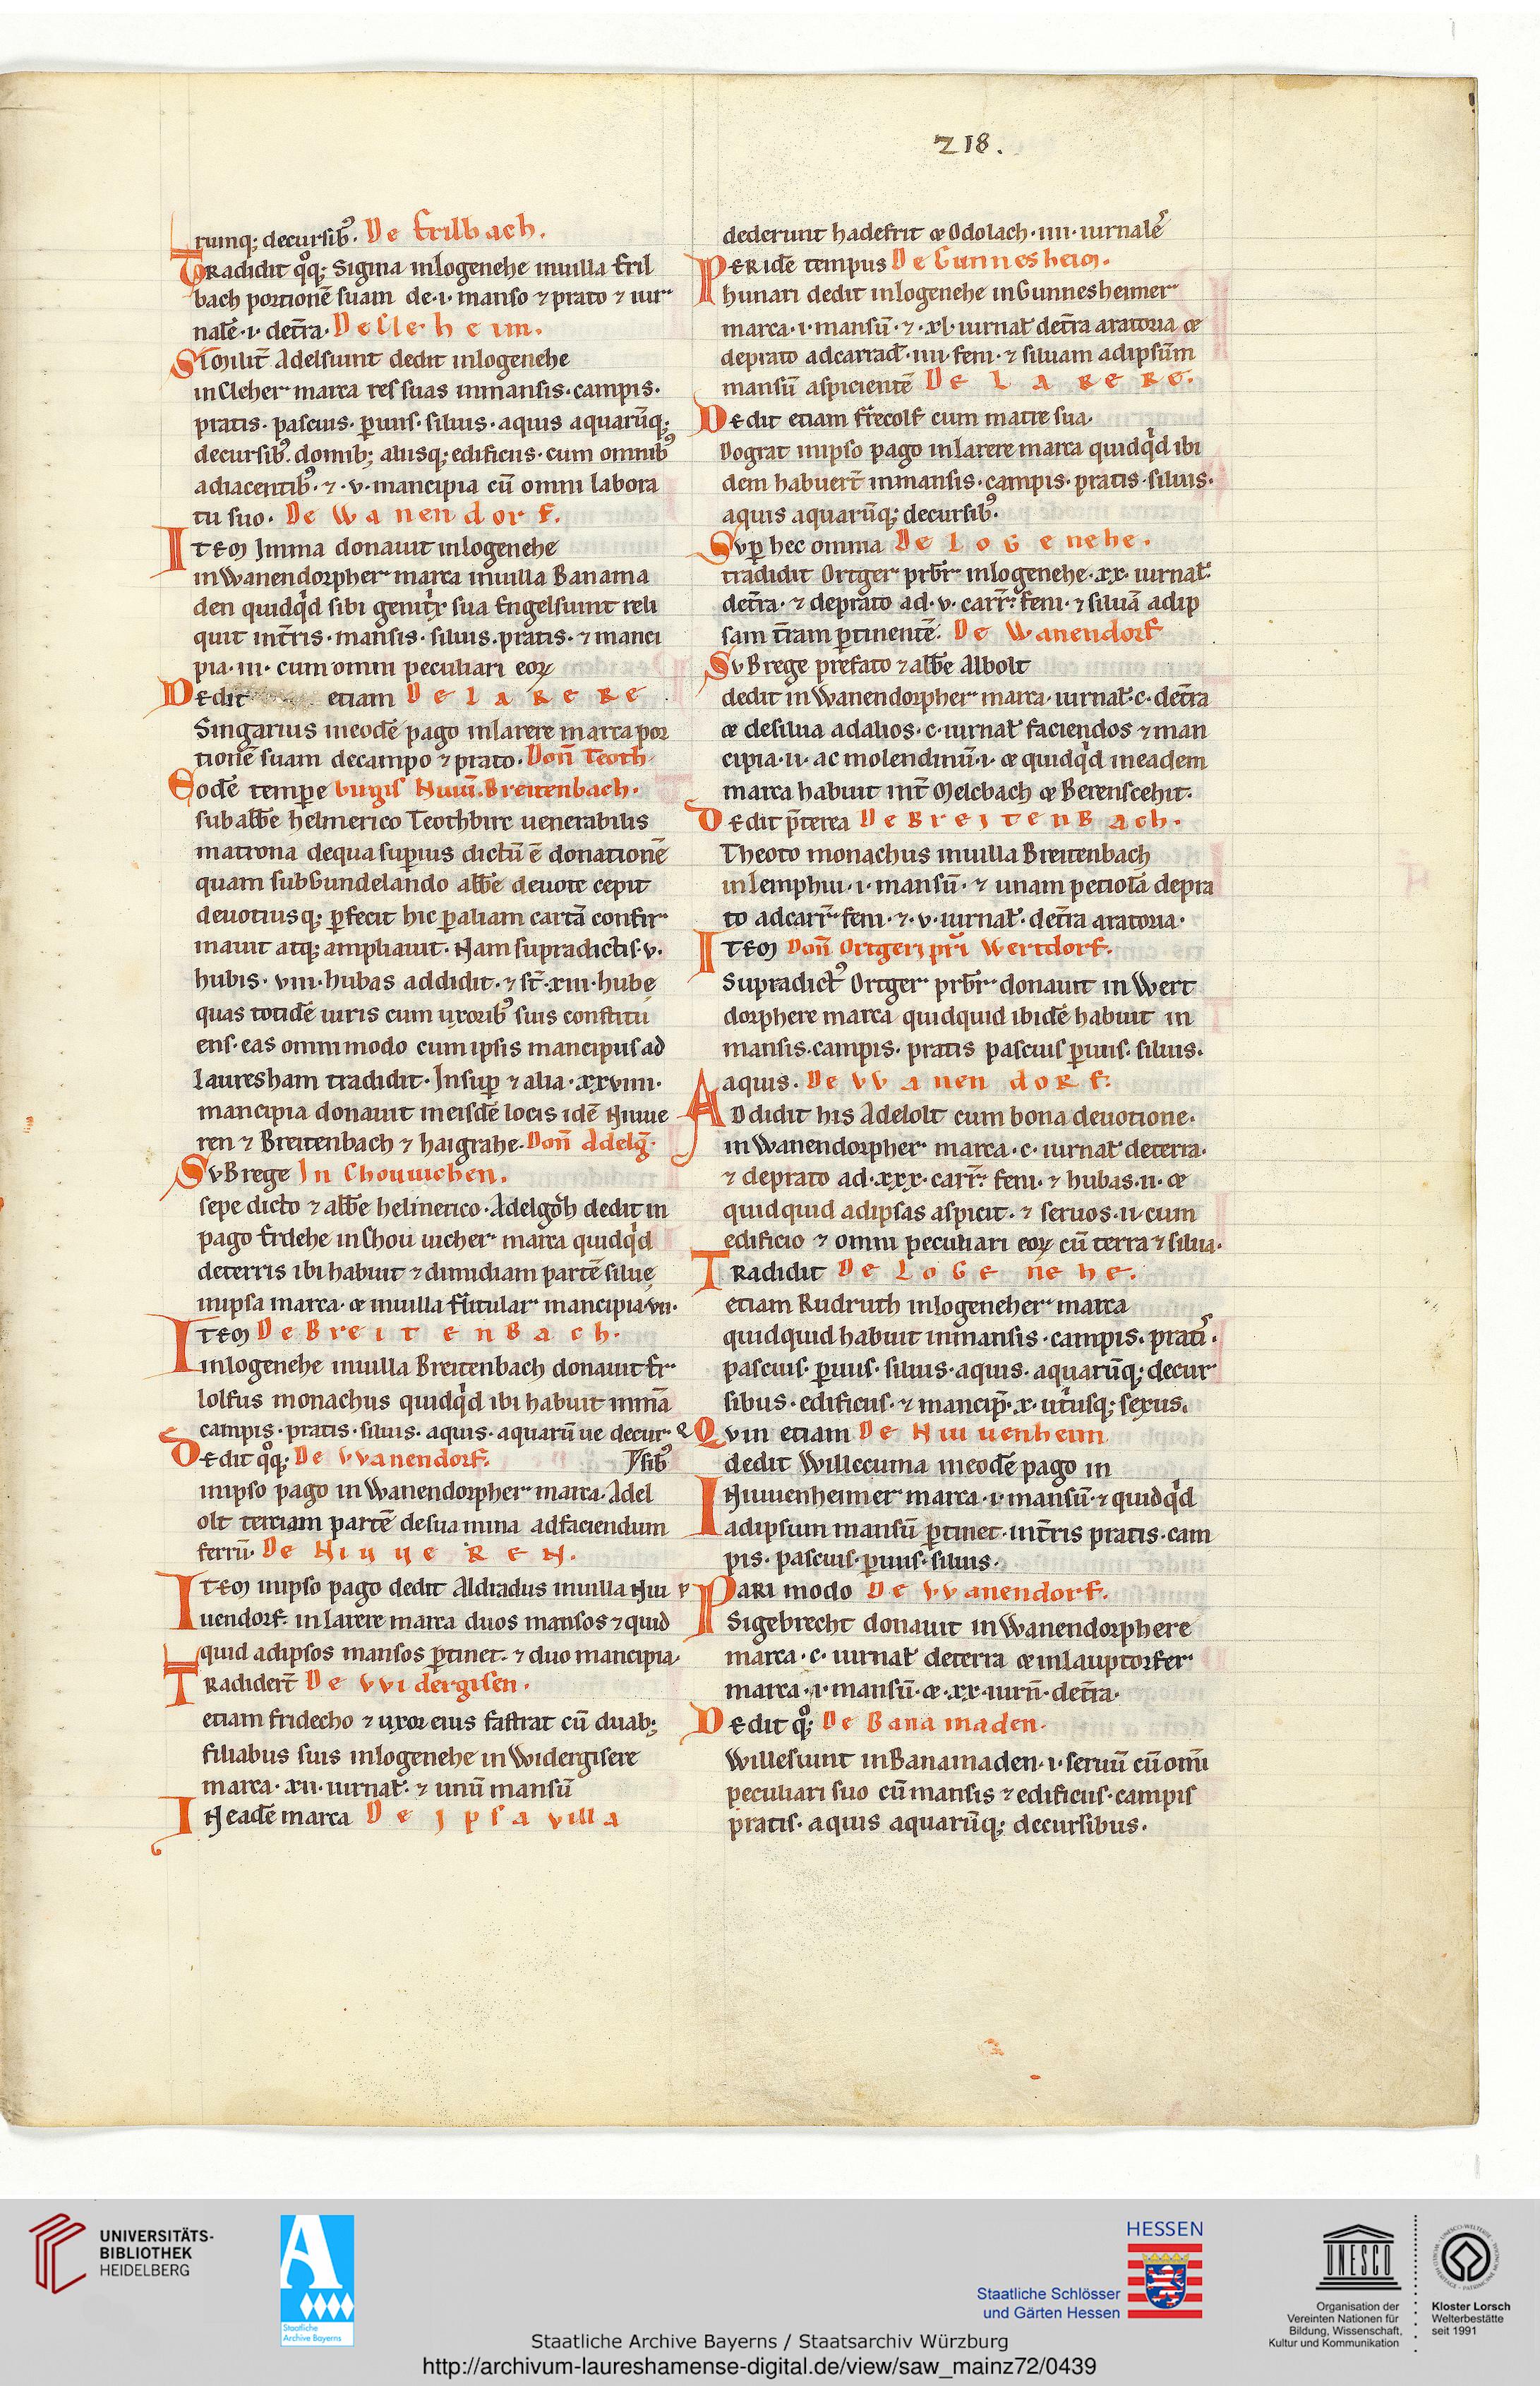 218.
rumq; decursib᷒. De Erilbach.
Tradidit qͦq; Sigina inlogenehe inuilla Eril
bach portionē suam de·i·manso ⁊ prato ⁊ iur
nalē·i·det̄ra· De Sleheim.
Similit̄ Adelsuint dedit inlogenehe
inCleher marca res suas inmansis·campis·
pratis·pascuis·ꝑuiis·siluis·aquis aquarūq;
decursib᷒·domib; aliisq; edificiis·cum omnib᷒
adiacentib᷒·⁊·v·mancipia cū omni labora
tu suo· De Wanendorf.
ITEM Imma donauit inlogenehe
inWanendorpher marca inuilla Banama
den quidqͥd sibi genitͥx sua Engelsuint reli
quit int̄ris·mansis·siluis·pratis·⁊ manci
pia·iii·cum omni peculiari eoꝝ
Dedit etiam De larere
Singarius ineodē pago inlarere marca por
tionē suam decampo ⁊ prato· Don̄ Teoth
Eodē tempore Huiū·Breitenbach·
sub abb̄e helmerico Teothbirc uenerabilis
matrona dequa supius dictū ē donationē
quam subGundelando abb̄e deuote cepit
deuotiusq; ꝑfecit hic ꝑaliam cartā confir
mauit atq; ampliauit· Nam supradictis·v·
hubis·viii·hubas addidit·⁊ st̄·xiii·hubę
quas totidē uiris cum uxorib᷒ suis constitu
ens·eas omnimodo cum ipsis mancipiis ad
lauresham tradidit· Insuꝑ ⁊ alia·xxviiii·
mancipia donauit ineisdē locis idē Hiuue
ren ⁊ Breitenbach ⁊ haigrahe· Don̄ Adelg̃·
Sub rege In Chouuichen.
sepe dicto ⁊ abb̄e helmerico·Adelgoͮh dedit in
pago Erdehe inChouuicher marca quidqͥd
deterris ibi habuit ⁊ dimidiam partē siluę
inipsa marca·et inuilla fritular mancipia·vii·
ITEM De Breitenbach·
inlogenehe inuilla Breitenbach donauit Er
lolfus monachus quidqͥd ibi habuit inmā
campis·pratis·siluis·aquis·aquarū ue decur
sib᷒
Dedit qͦq; De VVanendorf.
inipso pago inWanendorpher marca·Adel
olt terciam partē desua mina adfaciendum
ferrū· De Hiuueren·
ITEM inipso pago dedit Aldradus inuilla Hiu
uendorf·inlarere marca duos mansos ⁊ quid
quid adipsos mansos ꝑtinet·⁊ duo mancipia·
Tradidert̄ De VVidergisen.
etiam fridecho ⁊ uxor eius fastrat cū duab;
filiabus suis inlogenehe inWidergisere
marca·xii·iurnal̄·⁊ unū mansū
IN eadē marca De Ipsa villa
dederunt hadefrit et Odolach·iiii·iurnalēs
PER idē tempus De Gunnesheim.
hunari dedit inlogenehe inGunnesheimer
marca·i·mansū·⁊·xl·iurnal̄ det̄ra aratoria et
deprato adcarrad̄·iiii·feni·⁊ siluam adipsūm
mansū aspicientē De Larere·
Dedit etiam frecolf cum matre sua·
Dograt inipso pago inlarere marca quidqͥd ibi
dem habuert̄ inmansis·campis·pratis·siluis·
aquis aquarūq; decursib᷒·
Suꝑ hec omnia De Logenehe·
tradidit Ortger prb̄r inlogenehe·xx·iurnal̄·
det̄ra·⁊ deprato ad·v·carr̄·feni·⁊ siluā adip
sam t̄ram ꝑtinentē· De Wanendorf
Sub rege prefato ⁊ abb̄e Albolt
dedit inWanendorpher marca·iurnal̄·c·det̄ra
et desilua adalios·c·iurnal̄ faciendos ⁊ man
cipia·ii·ac molendinū·i·et quidqͥd ineadem
marca habuit int̄ Melcbach et Berenscehit·
Dedit p̄terea De Breitenbach·
Theoto monachus inuilla Breitenbach
inlemphiu·i·mansū·⁊ unam peciolā depra
to adcarr̄ feni·⁊·v·iurnal̄·det̄ra aratoria·
ITEM Don̄ Ortgeri pr̄i Wertdorf·
Supradict᷒ Ortger prb̄r donauit inWert
dorphere marca quidquid ibidē habuit in
mansis·campis·pratis pascuis ꝑuiis·siluis·
aquis· De VVanendorf·
Addidit his Adelolt cum bona deuotione·
inWanendorpher marca·c·iurnal̄ deterra·
⁊ deprato ad·xxx·carr̄·feni·⁊ hubas·ii·et
quidquid adipsas aspicit·⁊ seruos·ii·cum
edificio ⁊ omni peculiari eoꝝ cū terra ⁊ silua·
Tradidit De Logenehe·
etiam Rudruth inlogeneher marca
quidquid habuit inmansis·campis·pratis·
pascuis·ꝑuiis·siluis·aquis·aquarūq; decur
sibus·edificiis·⁊ mancip̄·x·utͥusq; sexus.
Quin etiam De Hiuuenheim
dedit Willecuma ineodē pago in
Hiuuenheimer marca·i·mansū·⁊ quidqͥd
adipsum mansū ꝑtinet·int̄ris pratis·cam
pis·pascuis·ꝑuiis·siluis·
Pari modo De VVanendorf·
Sigebrecht donauit inWanendorphere
marca·c·iurnal̄ deterra et inlauptorfer
marca·i·mansū·et·xx·iurn̄·det̄ra·
Dedit qͦ; De Banamaden·
Willesuint inBanamaden·i·seruū cū omī
peculiari suo cū mansis ⁊ edificiis·campis
pratis·aquis aquarūq; decursibus·
UNIVERSITÄTS-
BIBLIOTHEK
HEIDELBERG
Staatliche
Archive Bayerns
HESSEN
Staatliche Schlösser
und Gärten Hessen
UNESCO
Organisation der
Vereinten Nationen für
Bildung, Wissenschaft,
Kultur und Kommunikation
Kloster Lorsch
Welterbestätte
seit 1991
Staatliche Archive Bayerns / Staatsarchiv Würzburg
http://archivum-laureshamense-digital.de/view/saw_mainz72/0439